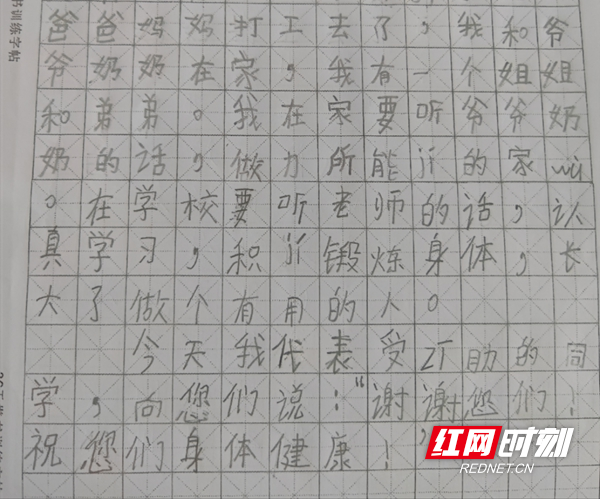 爸爸妈妈打工去了，我和爷
爷奶奶在家，我有一个姐姐
和弟弟。我在家要听爷爷奶
奶的话，做力所能jí的家wù
。在学校要听老师的话，认
真学习，积jí锻炼身体，长
大了做个有用的人。
今天我代表受ZT助的同
学，向您们说：“谢谢您们！
祝您们身体健康！”
书训练字帖
红网时刻
REDNET.CN